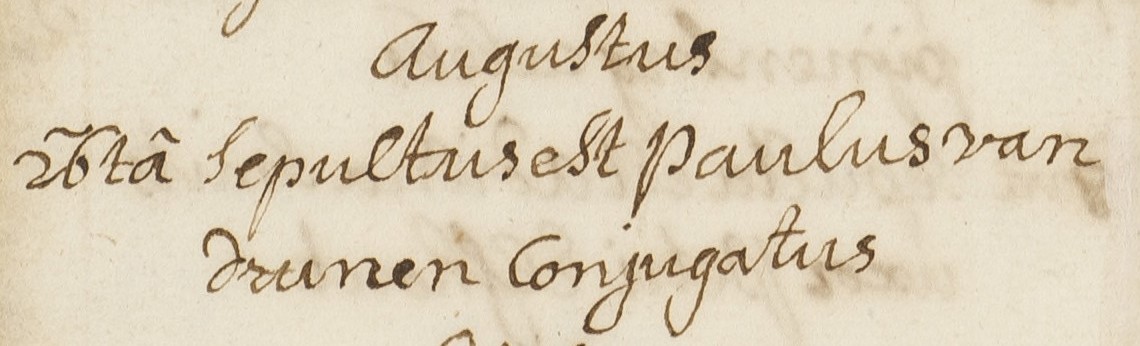 Augustus
26tâ Sepultus est Paulus van
drunen Conjugatus